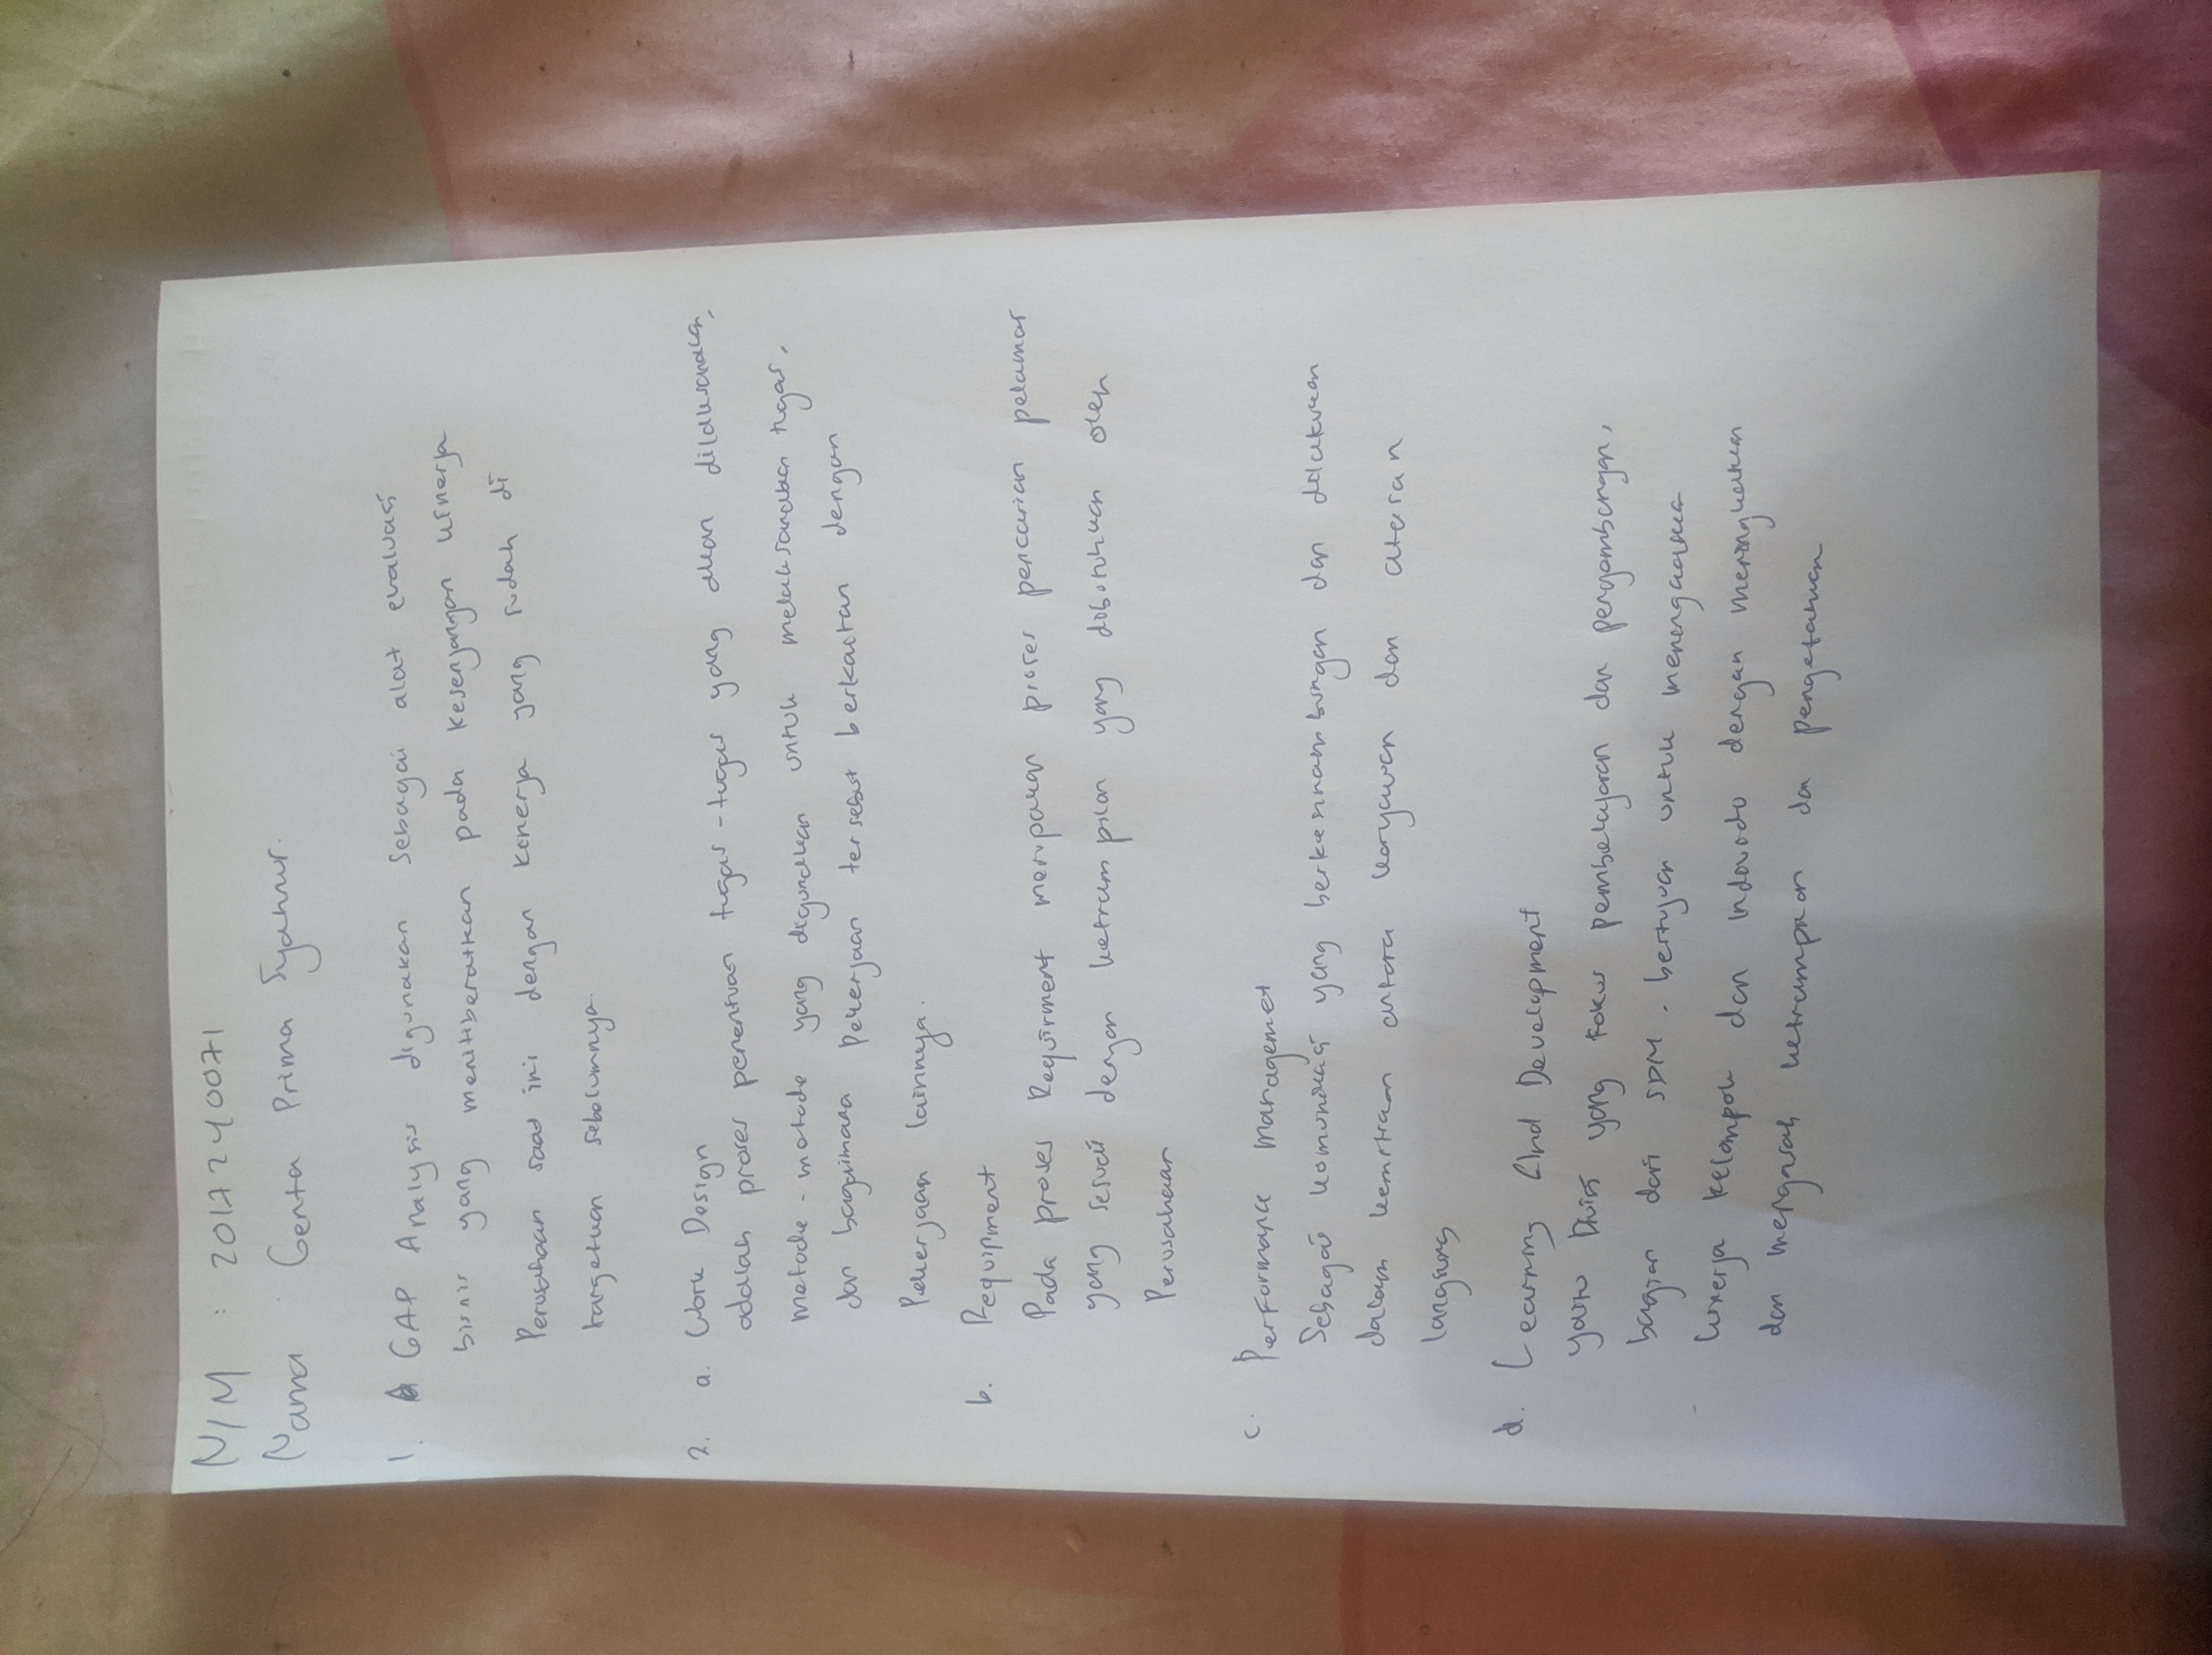 NIM : 2017240071
Nama : Genta Prima Syahnur.
1. GAP Analysis digunakan sebagai alat evaluasi
bisnis yang menitiberatkan pada kesenjangan kinerja
Perusahaan saat ini dengan kinerja yang sudah di
targetkan sebelumnya.
2. a. Work Design
adalah proses penentuan tugas-tugas yang akan dilaksanakan,
metode-metode yang digunakan untuk melaksanakan tugas,
dan bagaimana Pekerjaan tersebut berkaitan dengan
Pekerjaan lainnya.
b. Requipment
Pada proses Requirment merupakan proses pencarian pelamar
yang sesuai dengan ketrampilan yang dibutuhkan oleh
Perusahaan
c. Performance managemet
Sebagai komunikasi yang berkesinambungan dan dilakukan
dalam kemitraan antara karyawan dan atasan
langsung
d. Learning And Development
yaitu Divisi yang fokus pembelajaran dan pengembangan,
bagian dari SDM. bertujuan untuk
kinerja kelompok dan dengan meningkatkan
dan mengasah ketrampilan dan pengetahuan